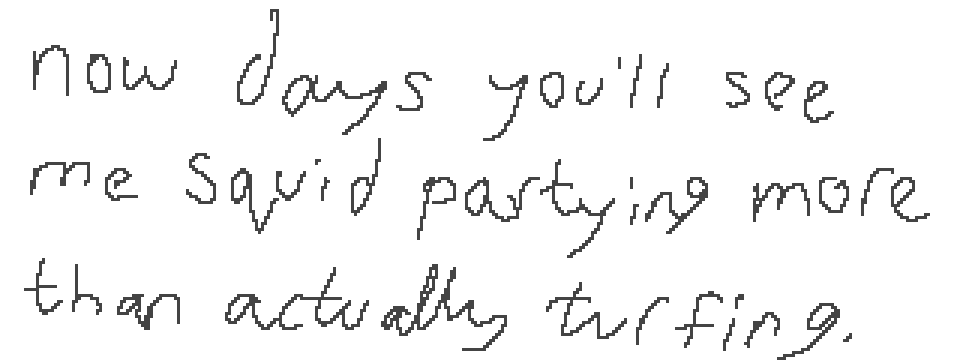 now days you'll see
me squid partying more
than actually turfing.